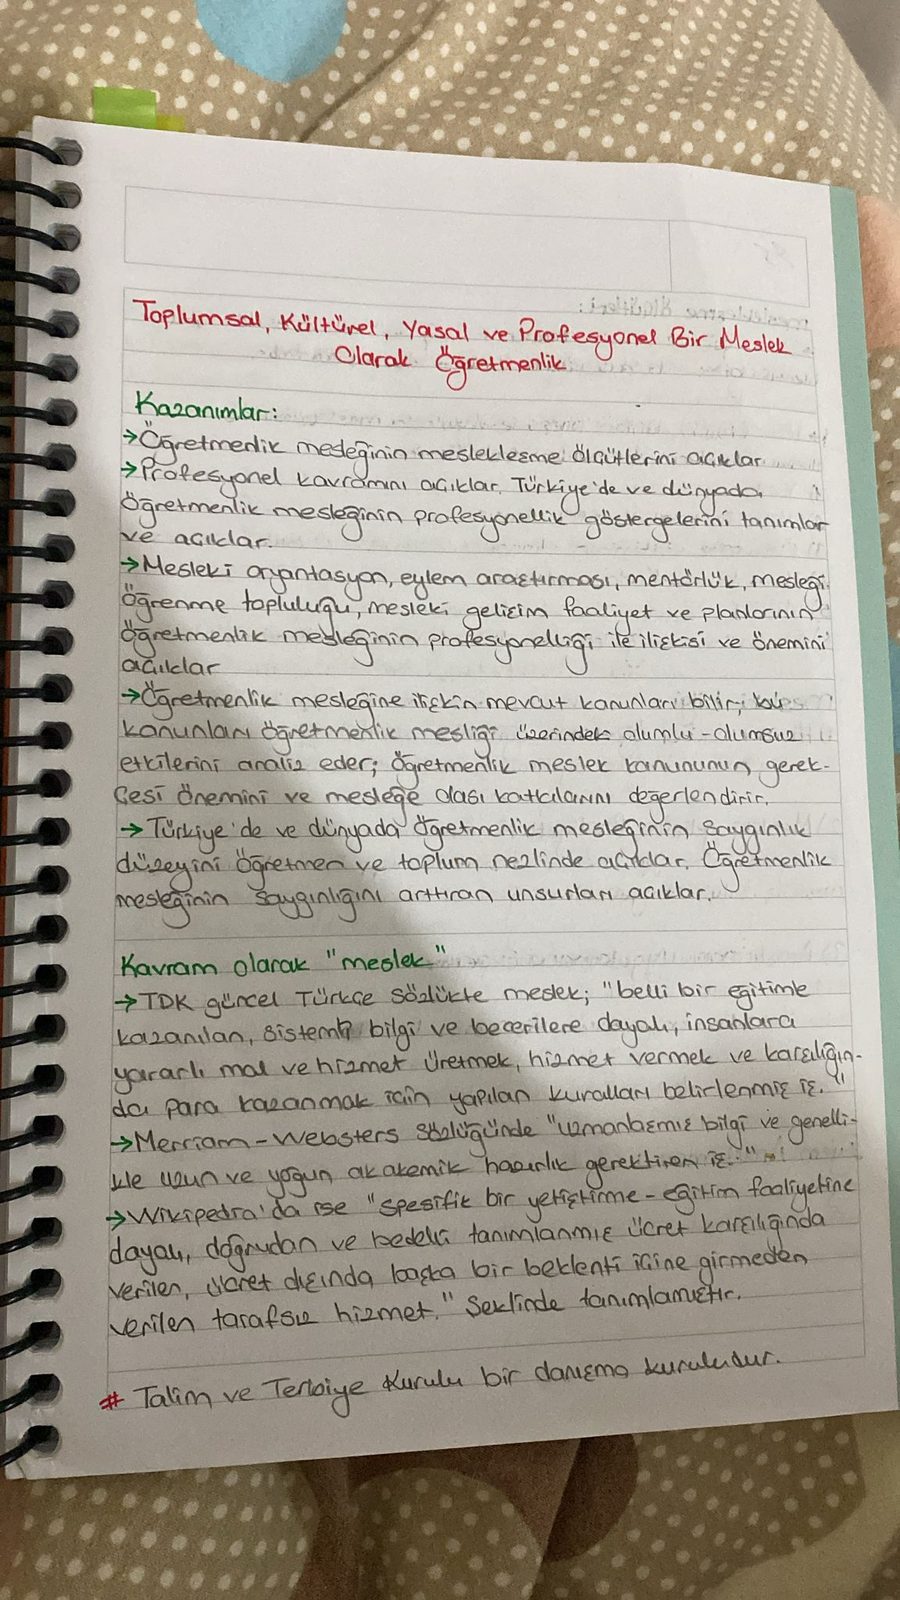 Toplumsal, Kültürel, Yasal ve Profesyonel Bir Meslek
Olarak Öğretmenlik
Kazanımlar:
→Öğretmenlik mesleğinin meslekleşme ölçütlerini açıklar
→Profesyonel kavramını açıklar, Türkiye'de ve dünyada
öğretmenlik mesleğinin profesyonellik göstergelerini tanımlar
ve açıklar.
→Mesleki oryantasyon, eylem araştırması, mentörlük, mesleği
öğrenme topluluğu, mesleki gelişim faaliyet ve planlarının
öğretmenlik mesleğinin profesyonelliği ile ilişkisi ve önemini
açıklar
→Öğretmenlik mesleğine ilişkin mevcut kanunları bilir; bu
kanunları öğretmenlik mesliği üzerindeki olumlu-olumsuz
etkilerini analiz eder; öğretmenlik meslek kanununun gerek-
çesi önemini ve mesleğe olası katkılarını değerlendirir.
→Türkiye'de ve dünyada öğretmenlik mesleğinin saygınlık
düzeyini öğretmen ve toplum nezlinde açıklar. Öğretmenlik
mesleğinin saygınlığını arttıran unsurları açıklar.
Kavram olarak "meslek"
→TDK güncel Türkçe sözlükte meslek; "belli bir eğitimle
kazanılan, sistemli bilgi ve becerilere dayalı, insanlara
yararlı mal ve hizmet üretmek, hizmet vermek ve karşılığın-
da para kazanmak için yapılan kuralları belirlenmiş iş."
→Merriam-Websters sözlüğünde "uzmanlaşmış bilgi ve genelli-
kle uzun ve yoğun akademik hazırlık gerektiren iş."
→Wikipedia'da ise "spesifik bir yetiştirme-eğitim faaliyetine
dayalı, doğrudan ve bedelli tanımlanmış ücret karşılığında
verilen, ücret dışında başka bir beklenti içine girmeden
verilen tarafsız hizmet." Şeklinde tanımlamıştır.
# Talim ve Terbiye Kurulu bir danışma kuruludur.